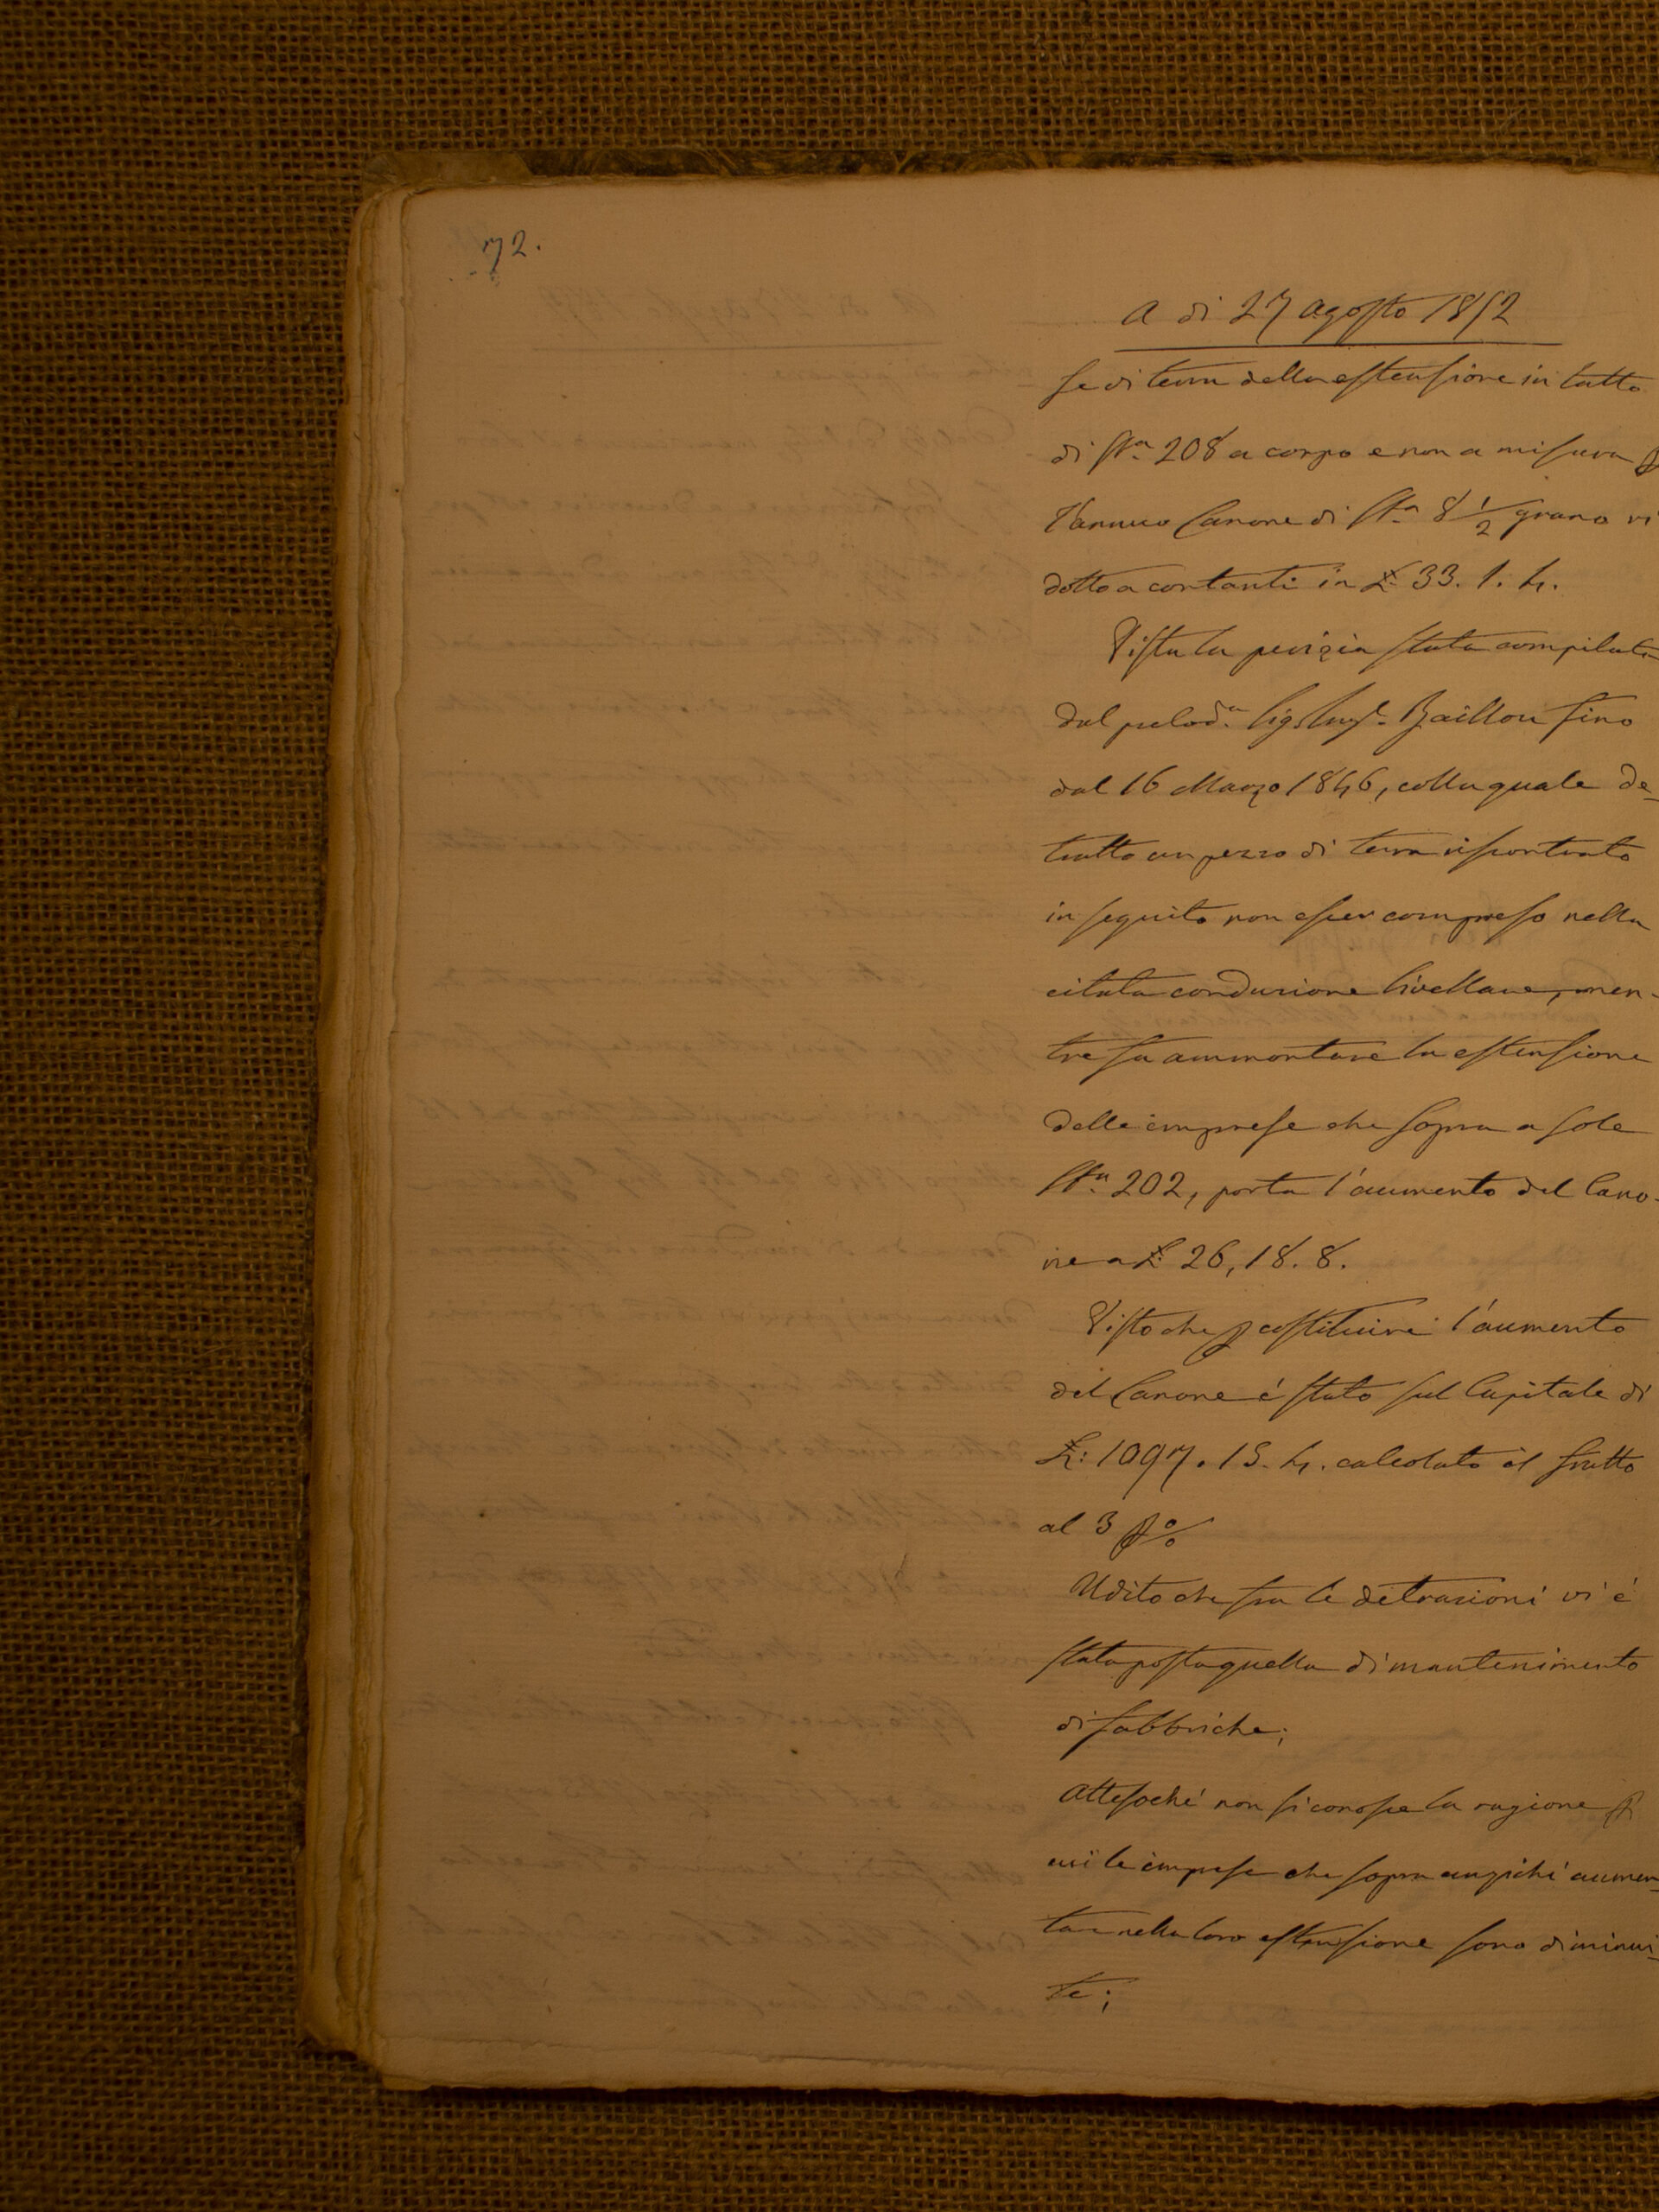 72.
A di 27 Agosto 1852
se di terra della estensione in tutto
di Sta. 208 a corpo e non a misura p
l'annuo Canone di Sta 8 1/2 grano ri
dotto a contanti in £ 33. 1. 4.
Vista la perizia stata compilata
dal prelod.o Sig. Ing.e Baillou fino
dal 16 Marzo 1846, colla quale de-
tratto un pezzo di terra riscontrato
in seguito non esser compreso nella
citata conduzione livellare, men-
tre fa ammontare la estensione
delle imprese che sopra a sole
Sta. 202, porta l'aumento del Cano-
ne a £ 26, 18. 8.
Visto che p costituire l'aumento
del Canone é stato sul Capitale di
£: 1097. 15. 4. calcolato il frutto
al 3 p %
Udito che fra le detrazioni vi é
stata posta quella di mantenimento
di fabbriche;
Attesoché non si conosce la ragione p
cui le imprese che sopra anziché aumen-
tare nella loro estensione sono diminui-
te;